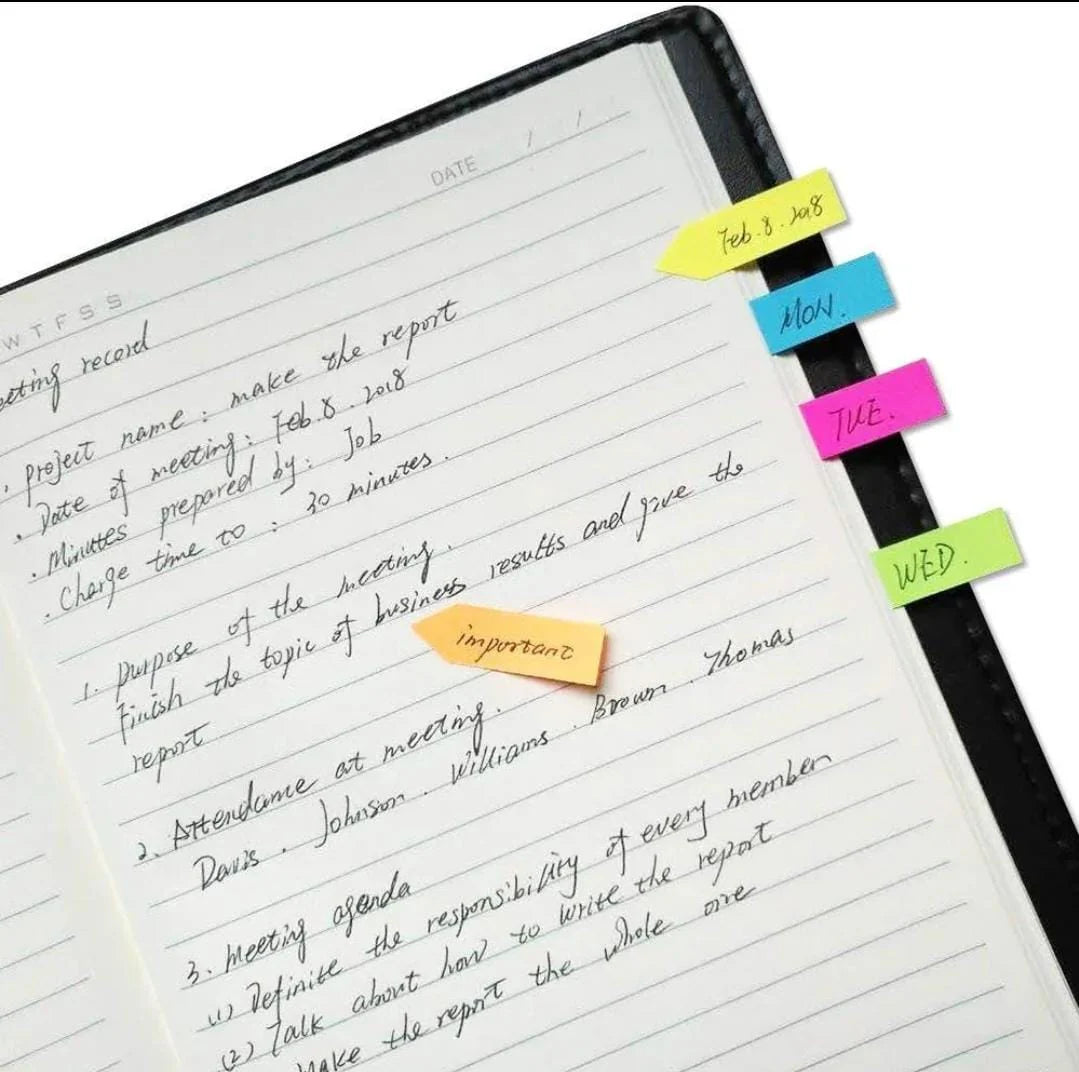 DATE / /
W T F S S
eeting record
· project name : make the report
· Date of meeting : Feb.8.2018
· Minutes prepared by : Job
· Charge time to : 30 minutes.
1. purpose of the meeting.
Finish the topic of business results and give the
report
2. Attendance at meeting.
Davis. Johnson. Williams. Brown. Thomas
3. Meeting agenda
(1) Definite the responsibility of every member
(2) Talk about how to write the report
Make the report the whole one
important
Feb.8.2018
MON.
TUE.
WED.